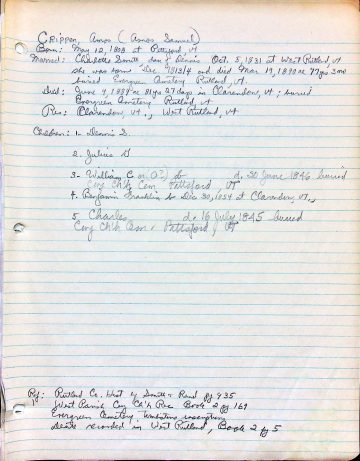 CRIPPEN, Amos (Amos Samuel)
Born: May 12, 1808 at Pittsford, Vt
Married: Charlotte Smith, dau of Dennis Oct. 5, 1831 at West Rutland, Vt
she was born Dec 1813/4 and died Mar 19, 1890 ae 77 yrs 3 mo
buried Evergreen Cemetery Rutland, Vt.
Died: June 9, 1889 ae 81 y 27 days in Clarendon, Vt; buried
Evergreen Cemetery Rutland, Vt
Res: Clarendon, Vt., West Rutland, Vt
Children: 1- Dennis S.
2. Julius
3- William C d. 30 June 1846 buried
Cong Ch'h Cem Pittsford, VT
4. Benjamin Franklin b. Dec 30, 1834 at Clarendon, Vt.,
5. Charles d. 16 July 1845 buried
Cong Ch'h Cem - Pittsford, VT
Ref: Rutland Co. Hist by Smith & Rand pg 935
West Parish Cong Ch'h Rec Book 2 pg 169
Evergreen Cemetery Tombstone inscriptions
deaths recorded in West Rutland, Book 2 pg 5